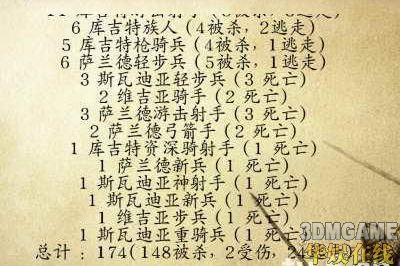 6 库吉特族人（4被杀，2逃走）
5 库吉特枪骑兵（4被杀，1逃走）
6 萨兰德轻步兵（5被杀，1逃走）
3 斯瓦迪亚轻步兵（3 死亡）
2 维吉亚骑手（2 死亡）
3 萨兰德游击射手（3 死亡）
2 萨兰德弓箭手（2 死亡）
1 库吉特资深骑射手（1 死亡）
1 萨兰德新兵（1 死亡）
1 斯瓦迪亚神射手（1 死亡）
1 斯瓦迪亚新兵（1 死亡）
1 维吉亚步兵（1 死亡）
1 斯瓦迪亚重骑兵（1 死亡）
总计：174(148被杀，2受伤，24
3DMGAME
华娱在线